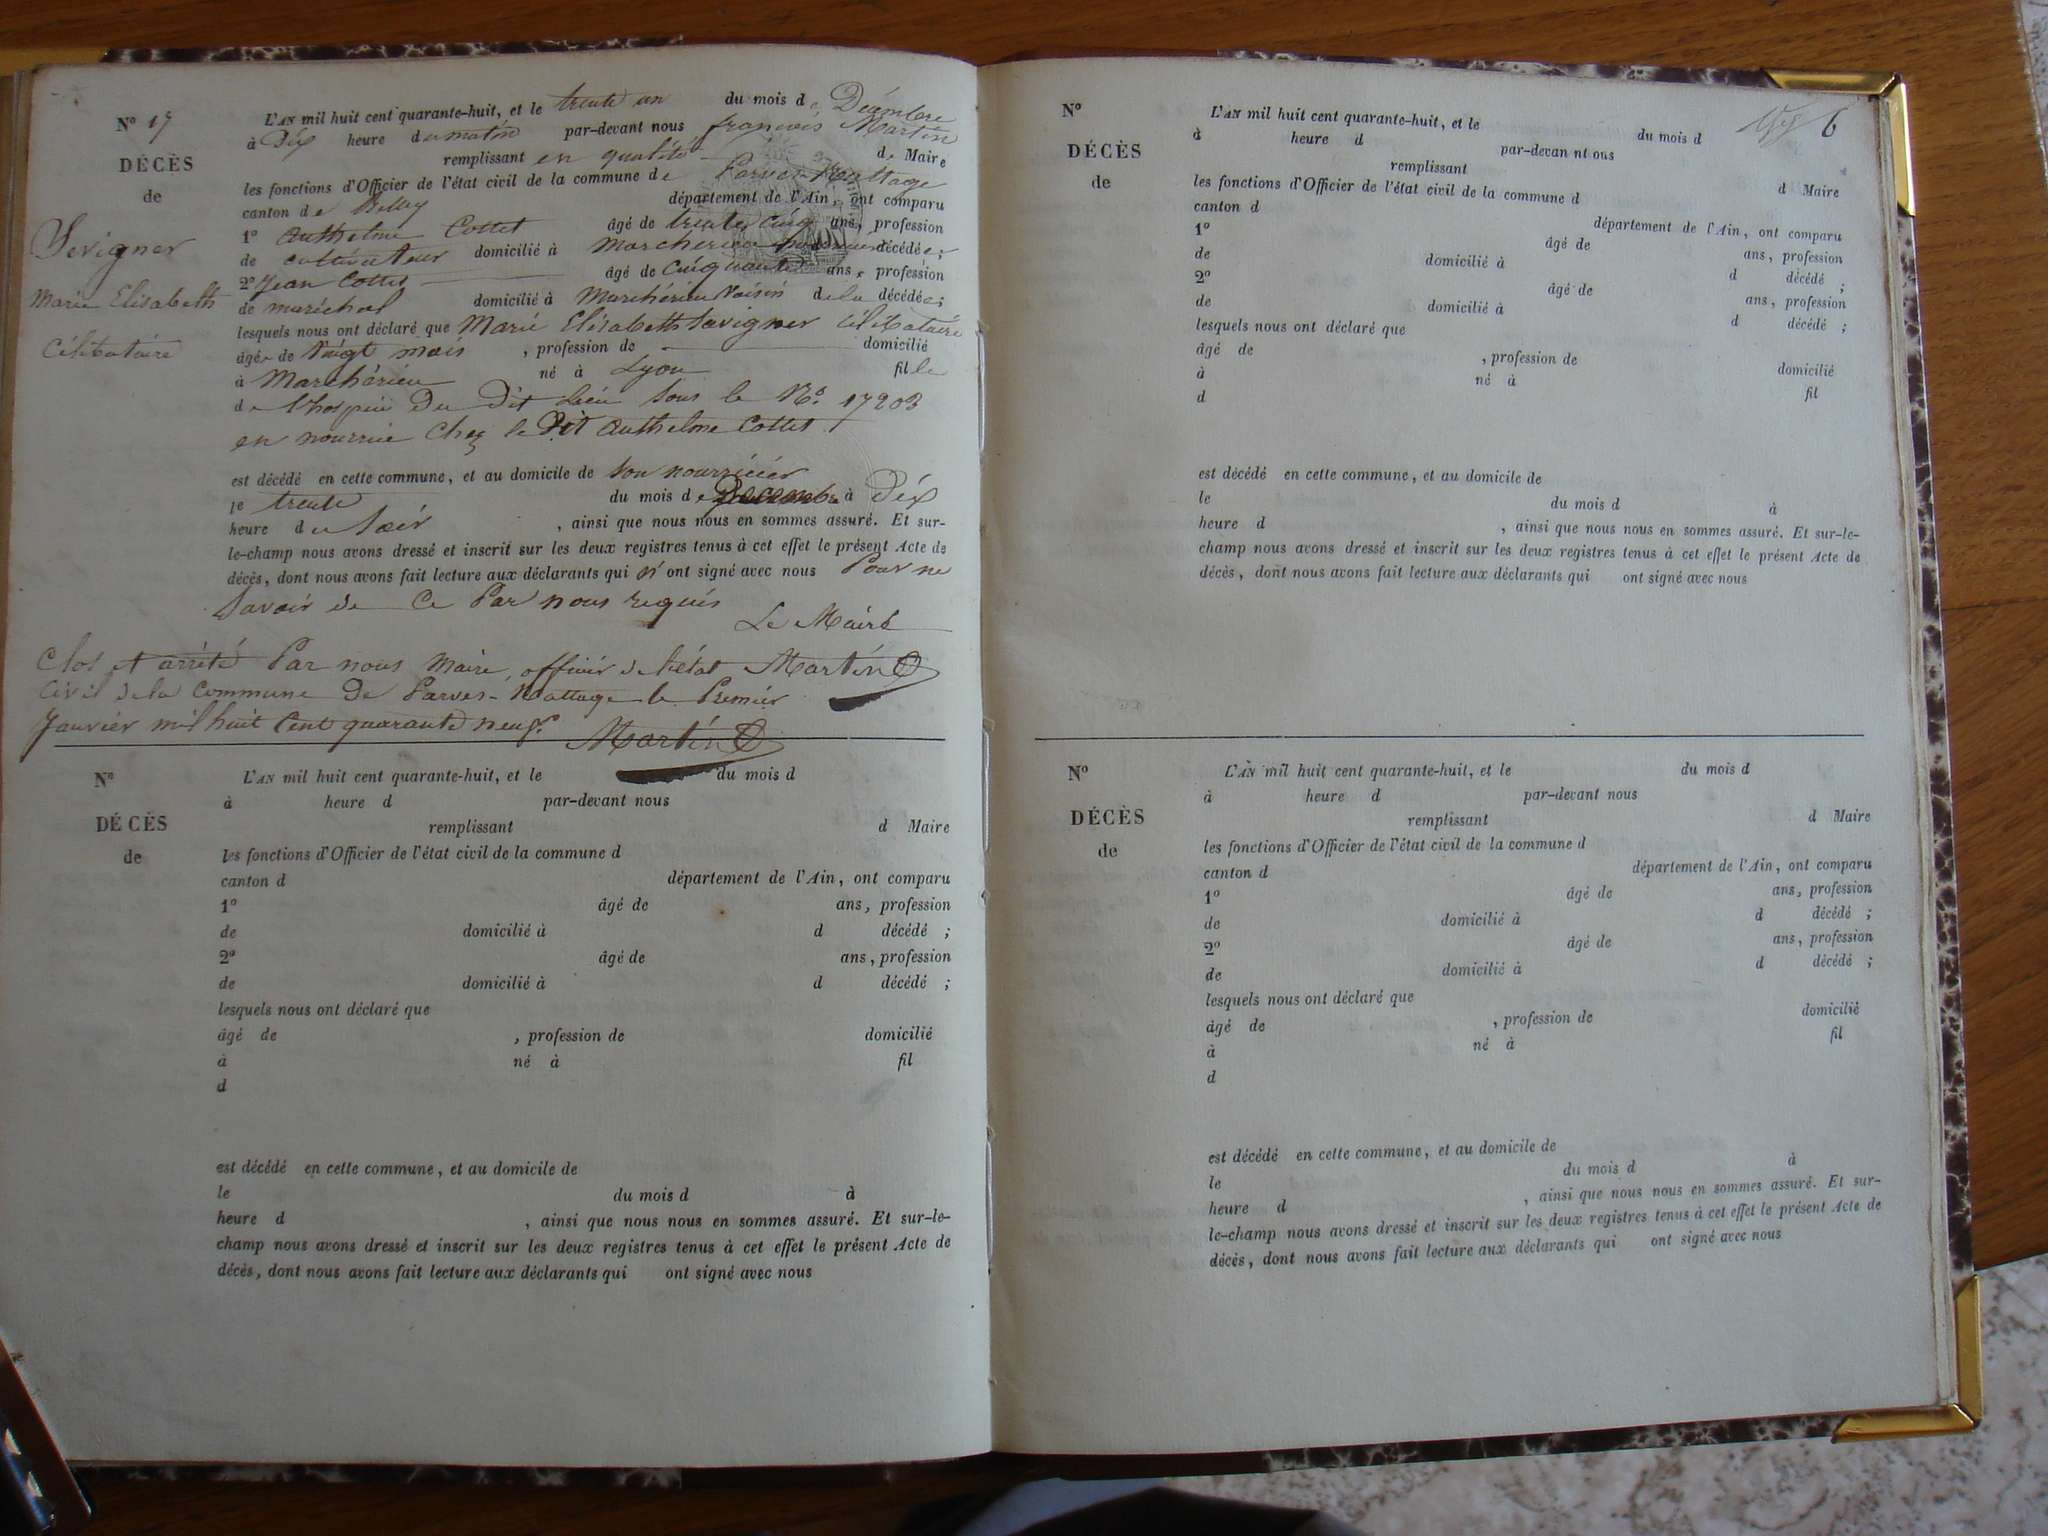 N° 17
DÉCÈS
de
Sevigner
Marie Elisabeth
Célibataire
L'AN mil huit cent quarante-huit, et le trente un du mois de Décembre
à Dix heure du matin par-devant nous françois Martin
remplissant en qualité de Maire
les fonctions d'Officier de l'état civil de la commune de Parves-Nattage
canton de Belley département de l'Ain, ont comparu
1° Anthelme Cottet âgé de trente cinq ans, profession
de cultivateur domicilié à Marcherieu décédée;
2° Jean Cottet âgé de Cinquante ans, profession
de maréchal domicilié à Marchérieu Voisin de la décédée;
lesquels nous ont déclaré que Marie Elisabeth Sevigner Célibataire
âgée de Vingt mois, profession de domicilié
à Marchérieu né à Lyon fille
de l'hospice Du Dit Lieu Sous le N°. 17203
en nourrice Chez le Dit Anthelme Cottet
est décédé en cette commune, et au domicile de son nourricier
le trente du mois de Décembre à Dix
heure du Soir, ainsi que nous nous en sommes assuré. Et sur-
le-champ nous avons dressé et inscrit sur les deux registres tenus à cet effet le présent Acte de
décès, dont nous avons fait lecture aux déclarants qui n'ont signé avec nous Pour ne
Savoir de Ce Par nous requis
Le Maire
Clos et arrêté Par nous Maire, officier de l'état Martin
Civil de la Commune De Parves-Nattage le Premier
Janvier mil huit Cent quarante neuf.
Martin
N°
DÉCÈS
de
L'AN mil huit cent quarante-huit, et le du mois d
à heure d par-devant nous
remplissant d Maire
les fonctions d'Officier de l'état civil de la commune d
canton d département de l'Ain, ont comparu
1° âgé de ans, profession
de domicilié à d décédé ;
2° âgé de ans, profession
de domicilié à d décédé ;
lesquels nous ont déclaré que
âgé de , profession de domicilié
à né à fil
d
est décédé en cette commune, et au domicile de
le du mois d à
heure d , ainsi que nous nous en sommes assuré. Et sur-le-
champ nous avons dressé et inscrit sur les deux registres tenus à cet effet le présent Acte de
décès, dont nous avons fait lecture aux déclarants qui ont signé avec nous
6
N°
DÉCÈS
de
L'AN mil huit cent quarante-huit, et le du mois d
à heure d par-devan nt ous
remplissant d Maire
les fonctions d'Officier de l'état civil de la commune d
canton d département de l'Ain, ont comparu
1° âgé de ans, profession
de domicilié à d décédé ;
2° âgé de ans, profession
de domicilié à d décédé ;
lesquels nous ont déclaré que
âgé de , profession de domicilié
à né à fil
d
est décédé en cette commune, et au domicile de
le du mois d à
heure d , ainsi que nous nous en sommes assuré. Et sur-le-
champ nous avons dressé et inscrit sur les deux registres tenus à cet effet le présent Acte de
décès, dont nous avons fait lecture aux déclarants qui ont signé avec nous
N°
DÉCÈS
de
L'AN mil huit cent quarante-huit, et le du mois d
à heure d par-devant nous
remplissant d Maire
les fonctions d'Officier de l'état civil de la commune d
canton d département de l'Ain, ont comparu
1° âgé de ans, profession
de domicilié à d décédé ;
2° âgé de ans, profession
de domicilié à d décédé ;
lesquels nous ont déclaré que
âgé de , profession de domicilié
à né à fil
d
est décédé en cette commune, et au domicile de
le du mois d à
heure d , ainsi que nous nous en sommes assuré. Et sur-
le-champ nous avons dressé et inscrit sur les deux registres tenus à cet effet le présent Acte de
décès, dont nous avons fait lecture aux déclarants qui ont signé avec nous